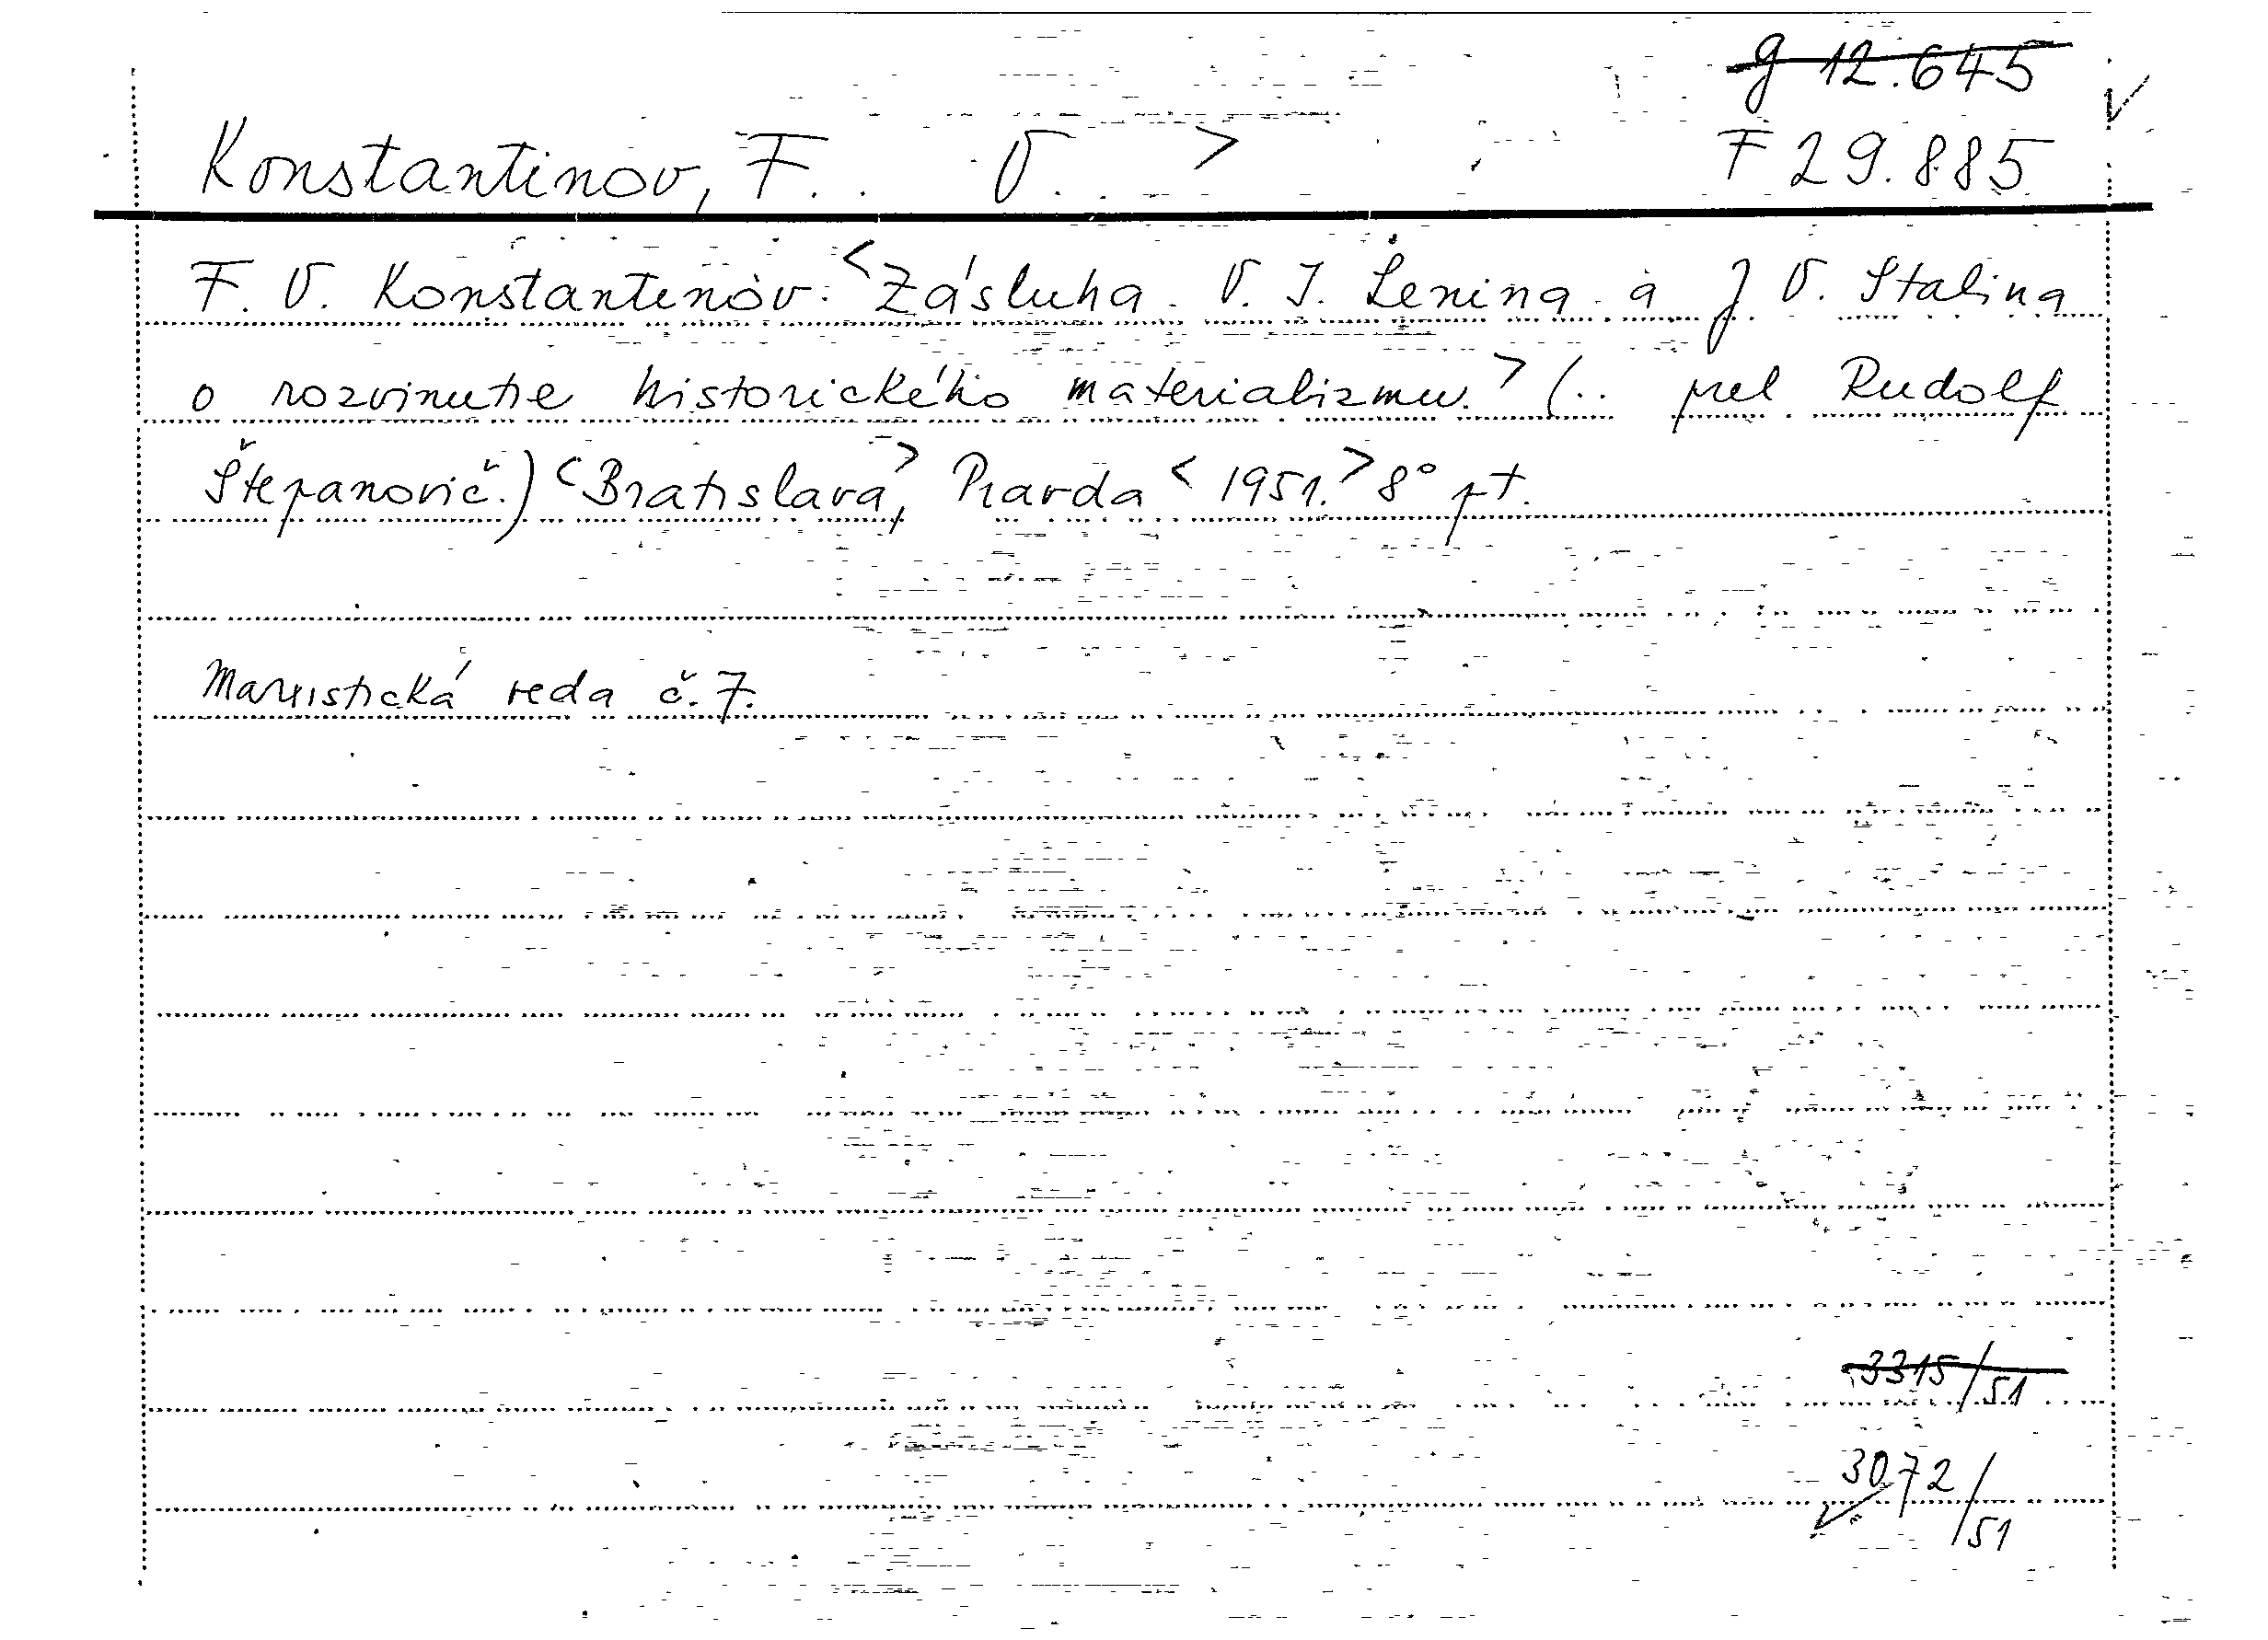 g 12.645
Konstantinov, F. . V. . >
F 29.885
F. V. Konstantinov: <Zásluha V. I. Lenina a J V. Stalina
o rozvinutie historického materializmu.> (.. prel Rudolf
Štepanovič.) <Bratislava>, Pravda <1951.> 8° pt.
Marxistická reda č. 7.
3315/51
3072/51